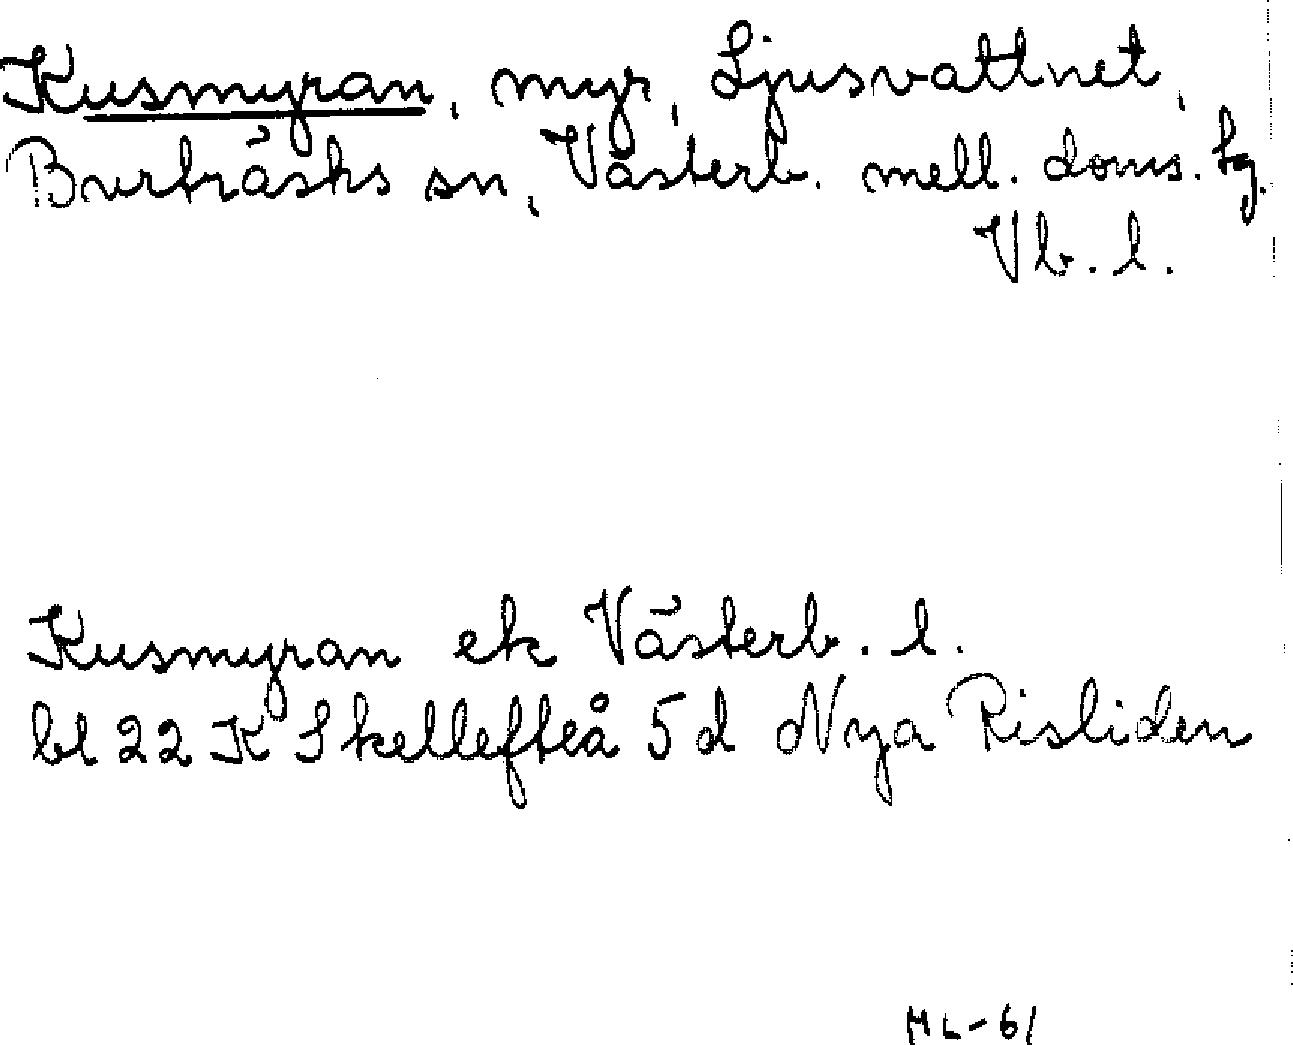 Kusmyran, myr, Ljusvattnet,
Burträsks sn, Västerb. mell. doms. tg.
Vb. l.
Kusmyran ek Västerb. l.
bl 22 K Skellefteå 5d Nya Risliden
ML-61